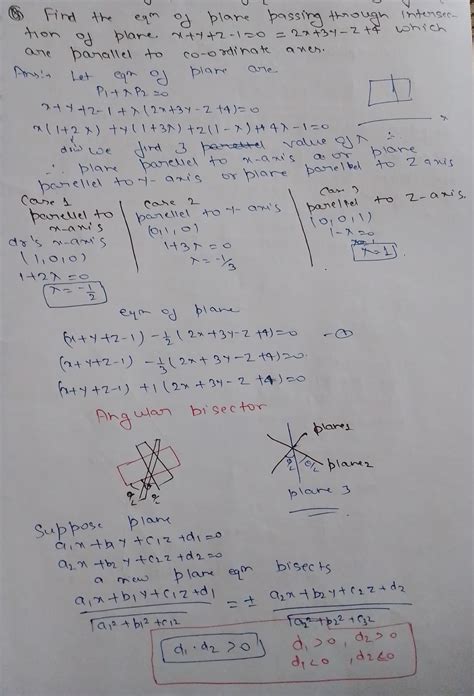 Q Find the eqn of plane passing through interse-
ction of plane x+y+z-1=0 = 2x+3y-z+4 which
are parallel to co-ordinate axes.
Ans:- Let eqn of plane are
P1+λP2=0
x+y+z-1+λ(2x+3y-z+4)=0
x(1+2λ)+y(1+3λ)+z(1-λ)+4λ-1=0
we find 3 value of λ ∴
∴ plane parellel to x-axis or plane
parellel to y-axis or plane parellel to z axis
Case 1
parellel to
x-axis
dr's x-axis
(1,0,0)
1+2λ=0
λ=-1/2
Case 2
parellel to y-axis
(0,1,0)
1+3λ=0
λ=-1/3
Case 3
parellel to z-axis
(0,0,1)
1-λ=0
λ=1
eqn of plane
(x+y+z-1) -1/2(2x+3y-z+4)=0 -①
(x+y+z-1) -1/3(2x+3y-z+4)=0
(x+y+z-1)+1(2x+3y-z+4)=0
Angular bisector
plane1
plane2
plane 3
Suppose plane
a1x+b1y+c1z+d1=0
a2x+b2y+c2z+d2=0
a new plane eqn bisects
a1x+b1y+c1z+d1/√a1²+b1²+c1² = ± a2x+b2y+c2z+d2/√a2²+b2²+c2²
d1·d2>0
d1>0, d2>0
d1<0, d2<0